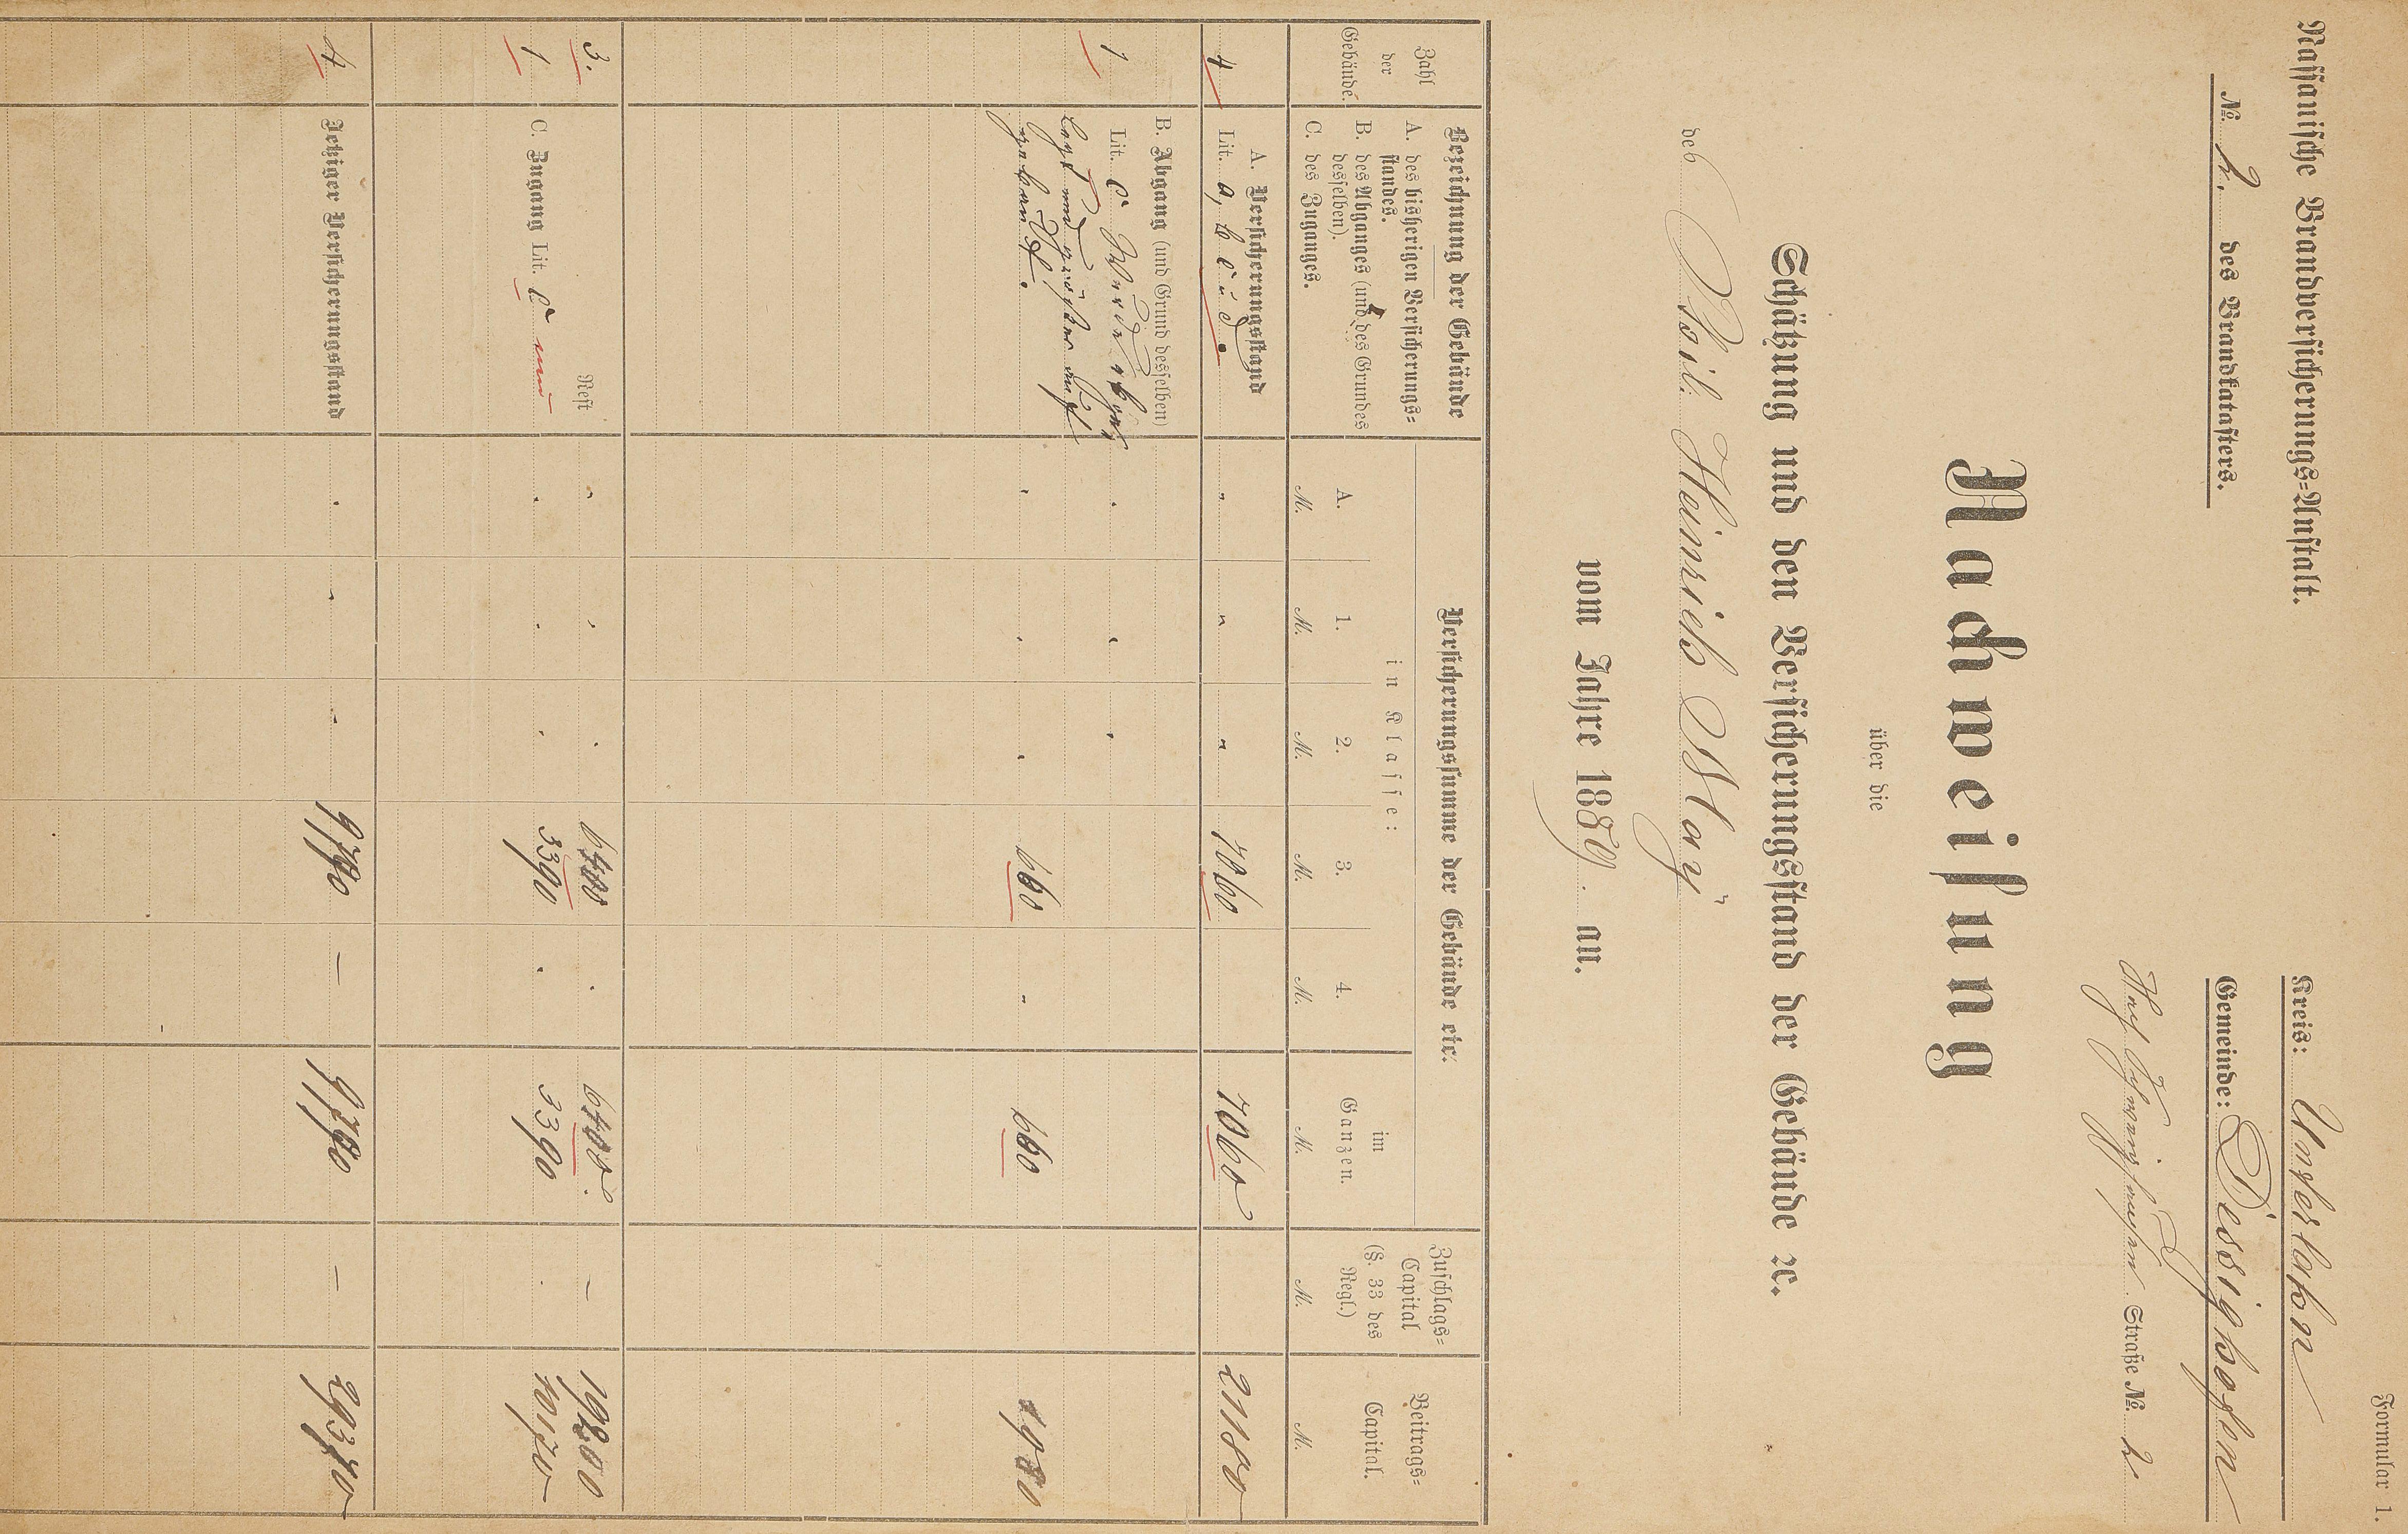 Formular 1.
Nassauische Brandversicherungs-Anstalt.
Kreis: Unterlahn
№. 2. des Brandkatasters.
Gemeinde: Dessighofen
Straße №. 2
Nachweisung
über die
Schätzung und den Versicherungsstand der Gebäude ꝛc.
des Phil. Heinrich May
vom Jahre 1889. an.
Zahl der Gebäude.
Bezeichnung der Gebäude
A. des bisherigen Versicherungs-
standes.
B. des Abganges (und des Grundes
desselben).
C. des Zuganges.
Versicherungssumme der Gebäude etc.
in Klasse:
A. 1. 2. 3. 4.
M. M. M. M. M.
im Ganzen.
M.
Zuschlags-
Capital
(§. 33 des
Regl.)
M.
Beitrags-
Capital.
M.
A. Versicherungsstand
4 Lit. a, b c u d. " " " 7060 7060 21180
B. Abgang (und Grund desselben)
1 Lit. c
und größer
660 660 1980
3. Rest 6400 6400. — 19200
1 C. Zugang Lit. c neu 3390 3390 10170
4 Jetziger Versicherungsstand 9790 — 9790 — 29370